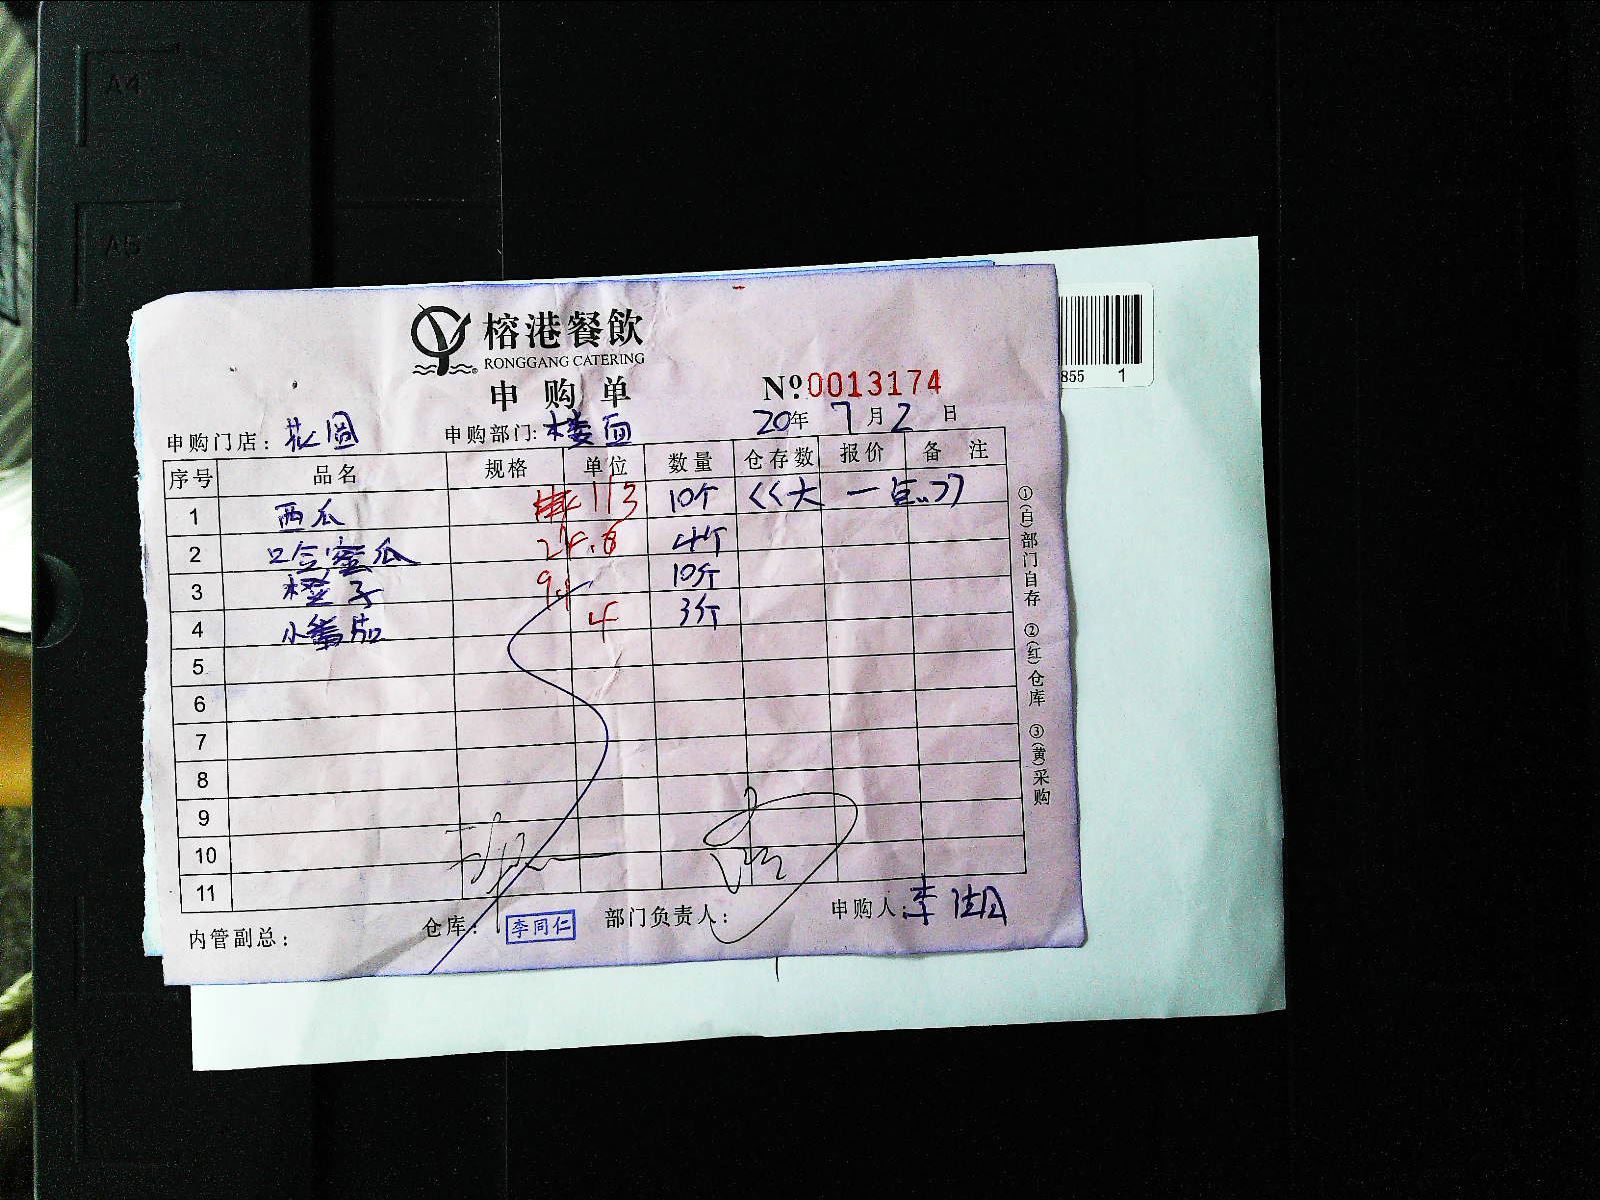 A4
A5
榕港餐飲
RONGGANG CATERING
申购单
№0013174
855 1
申购门店: 花园 申购部门: 楼面 20年 7月2日
序号 品名 规格 单位 数量 仓存数 报价 备注
1 西瓜 113 10个 《大一点..》
2 哈密瓜 24.8 4个
3 橙子 94 10斤
4 小番茄 4 3斤
5
6
7
8
9
10
11
内管副总: 仓库: 李同仁 部门负责人: 申购人: 李
①(白)部门自存 ②(红)仓库 ③(黄)采购